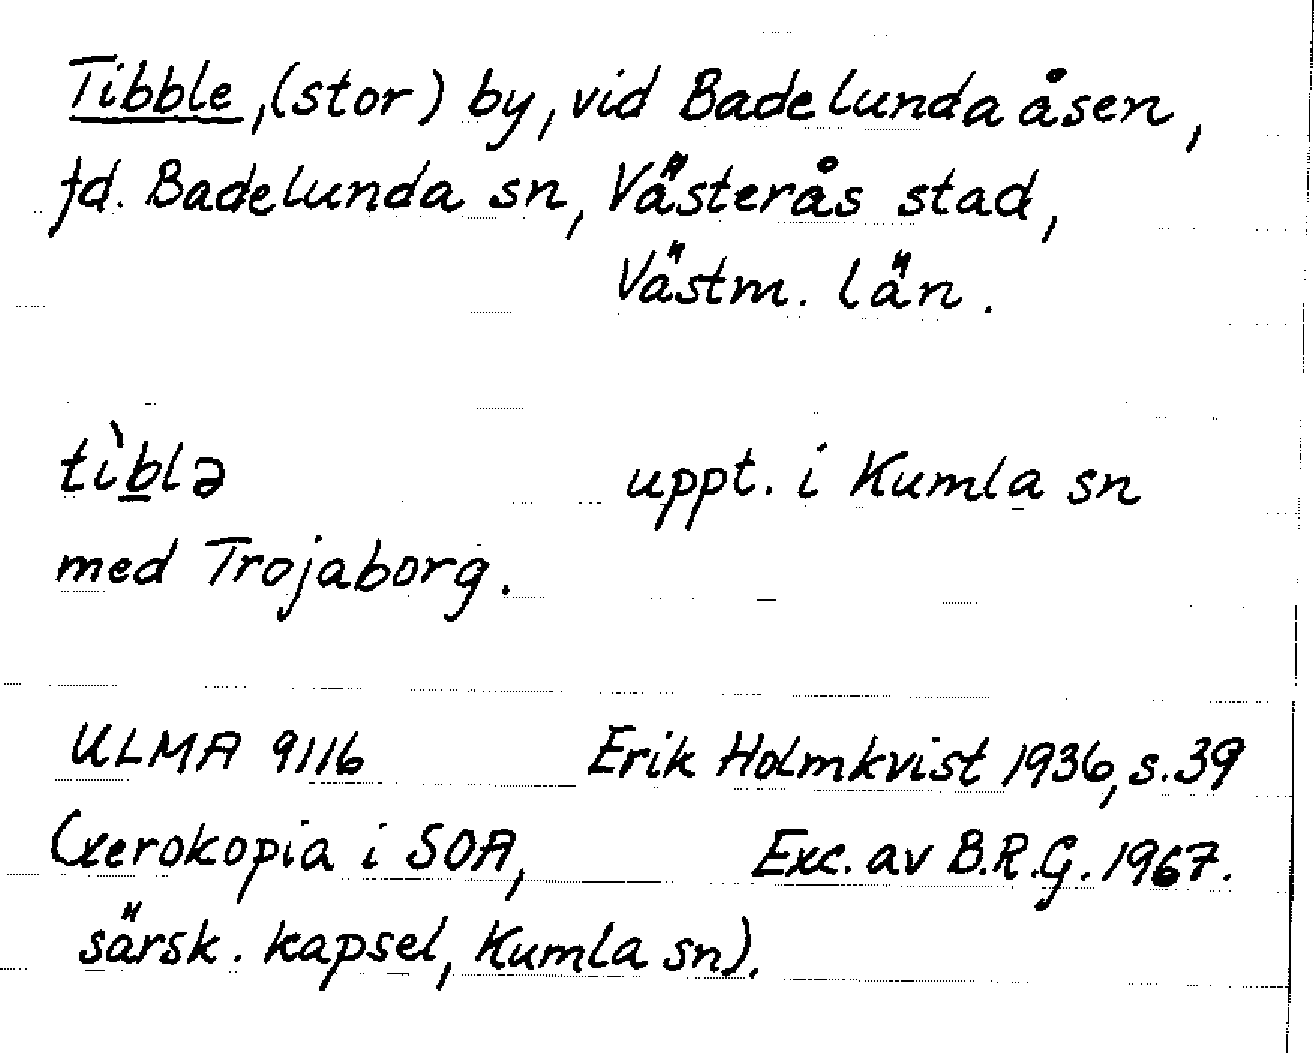 Tibble, (stor) by, vid Badelundaåsen,
fd. Badelunda sn, Västerås stad,
Västm. län.
tìblə uppt. i Kumla sn
med Trojaborg.
ULMA 9116 Erik Holmkvist 1936, s. 39
(xerokopia i SOA, Exc. av B.R.G. 1967.
särsk. kapsel, Kumla sn).